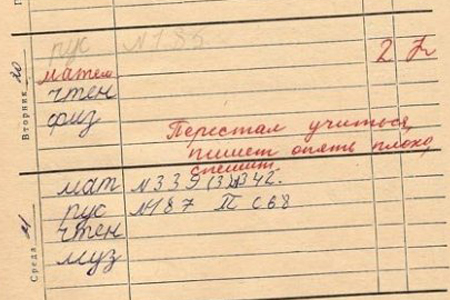 Вторник 20
рус № 185
матем 2
чтен
физ
Перестал учиться,
пишет опять плохо,
спешит
Среда 21
мат № 339 (3,4) 342.
рус № 187 II с 68
чтен
муз